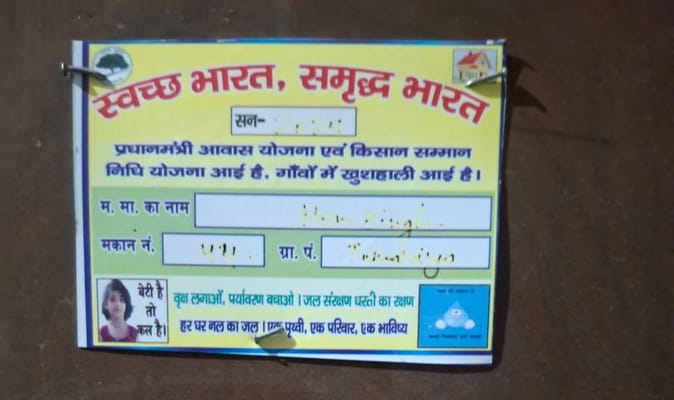 स्वच्छ भारत, समृद्ध भारत
सन-
प्रधानमंत्री आवास योजना एवं किसान सम्मान
निधि योजना आई है, गाँवों में खुशहाली आई है।
म. मा. का नाम
मकान नं. ग्रा. पं.
बेटी है
तो
कल है।
वृक्ष लगाओं, पर्यावरण बचाओ। जल संरक्षण धरती का रक्षण
हर घर नल का जल। एक पृथ्वी, एक परिवार, एक भाविष्य